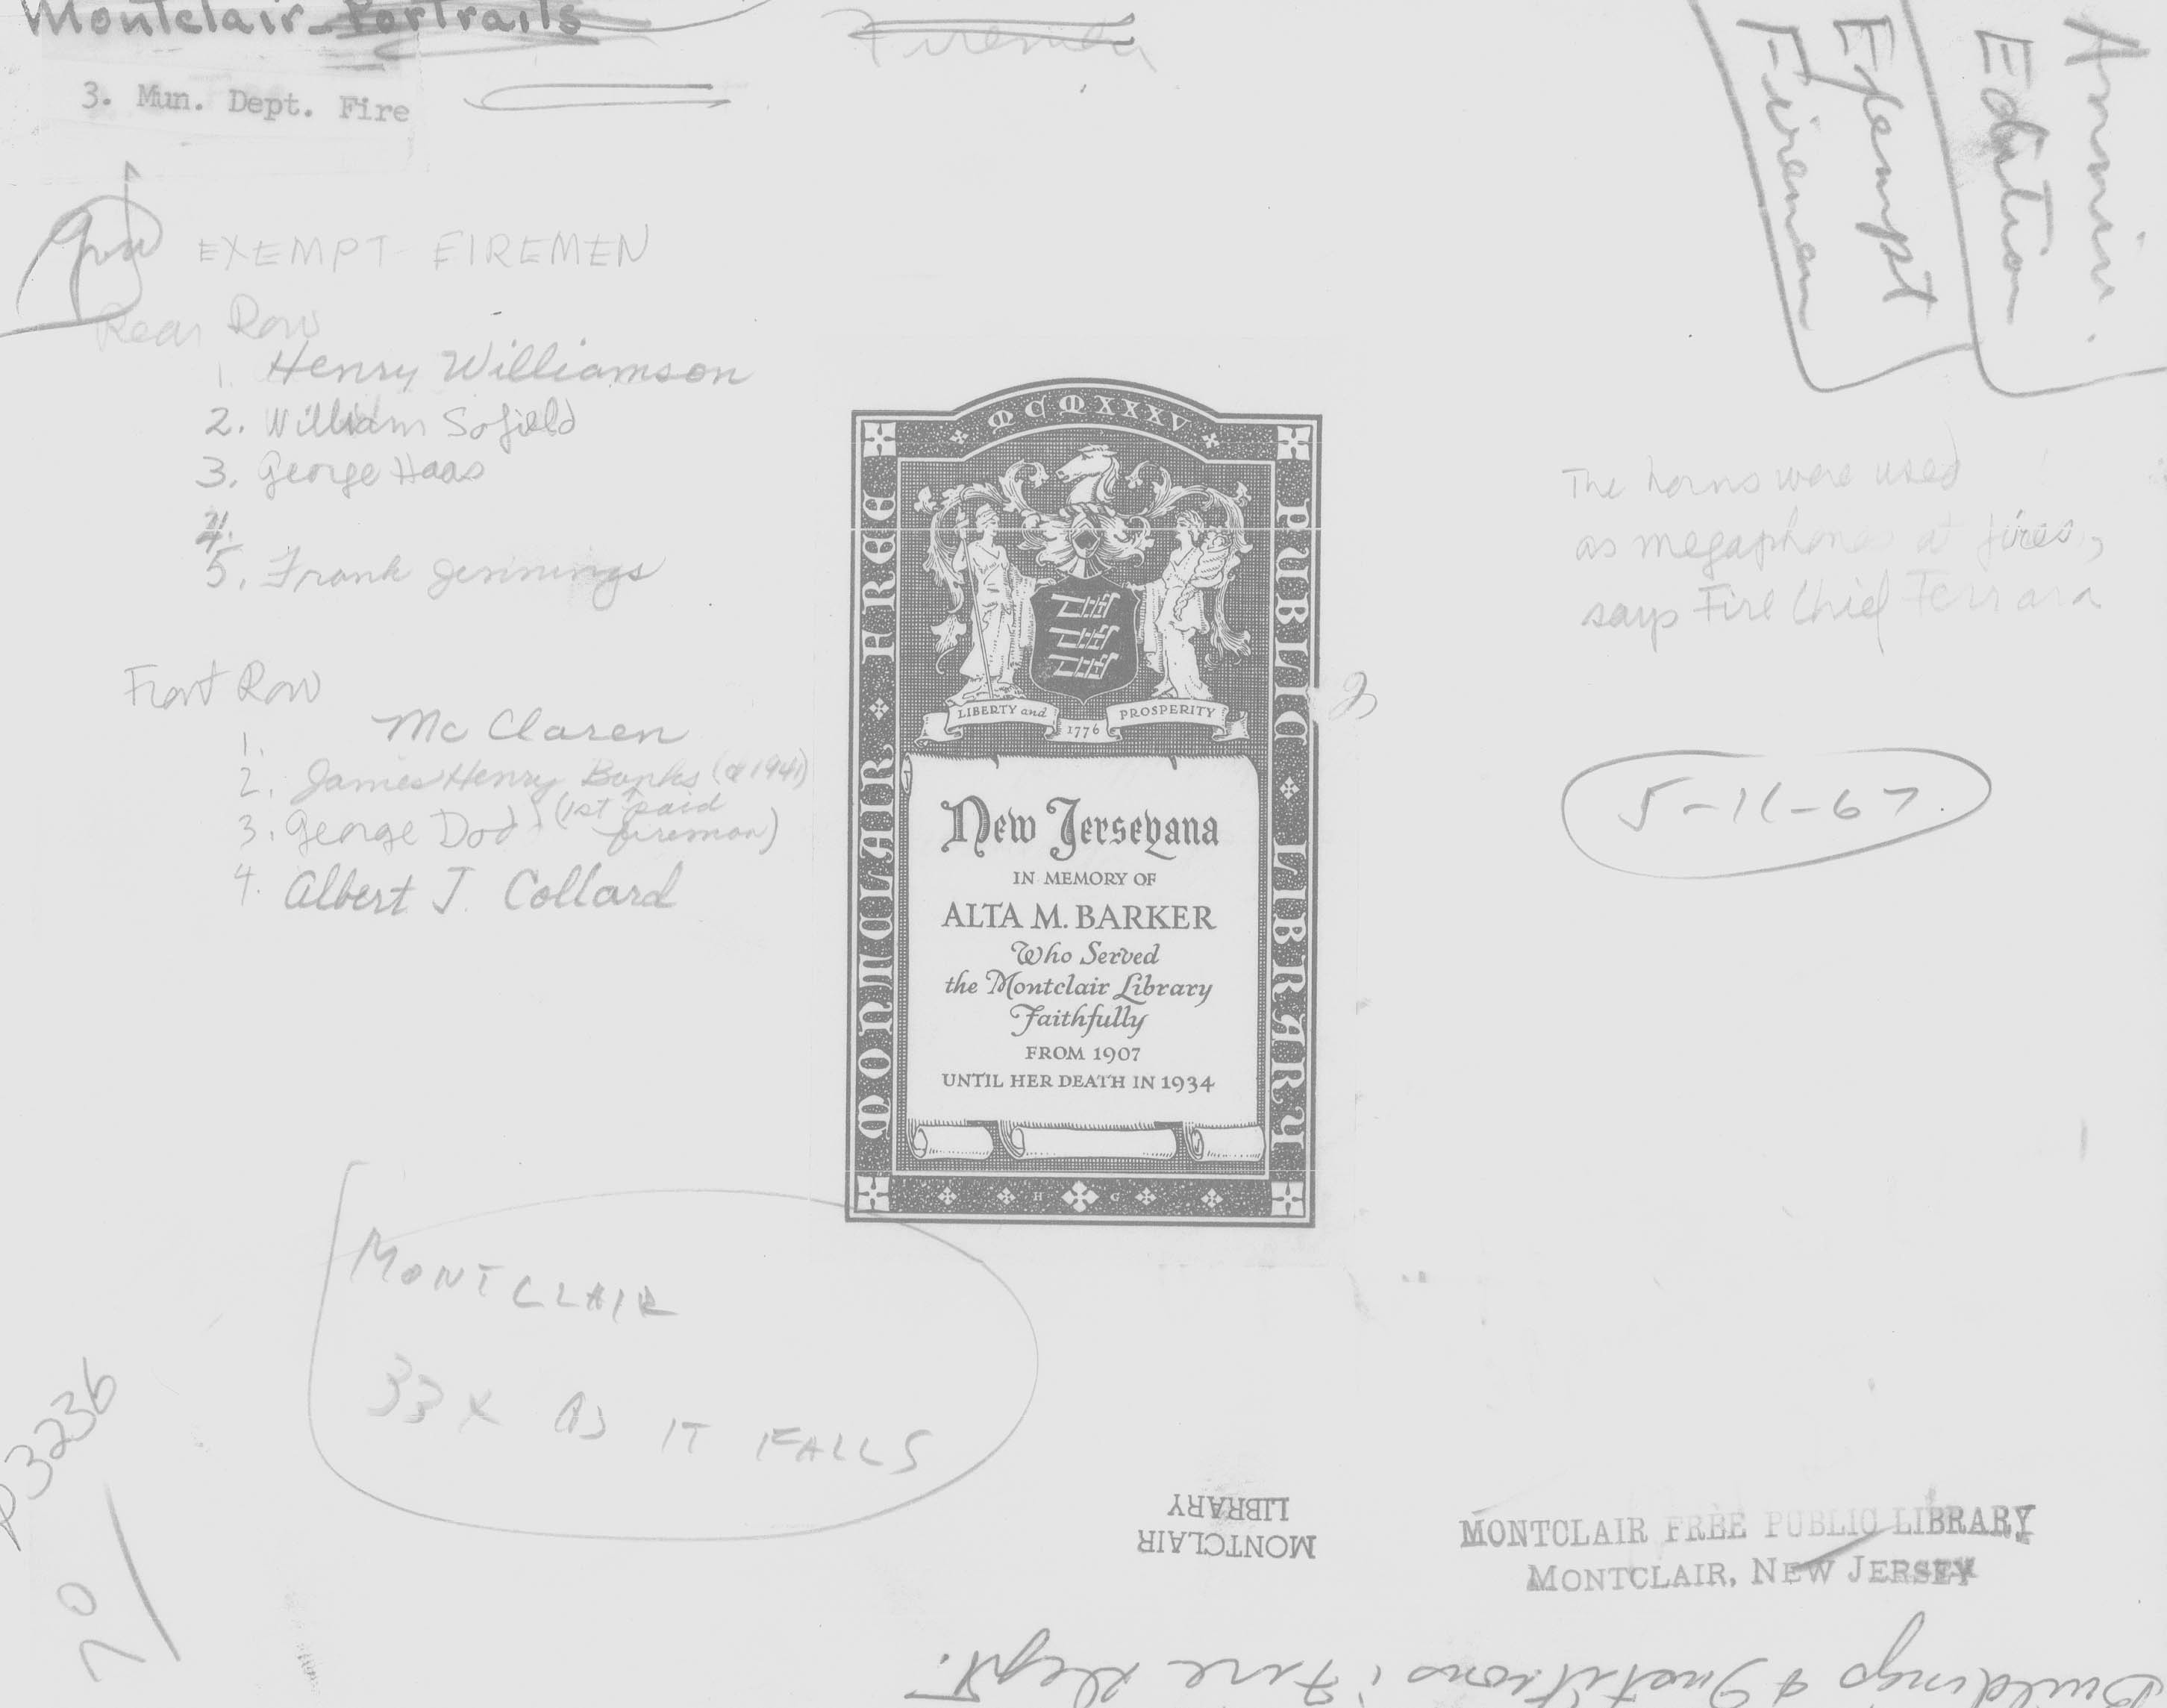 Montclair-Portraits
Firemen
3. Mun. Dept. Fire
Edition
Exempt
Firemen
EXEMPT FIREMEN
Rear Row
1. Henry Williamson
2. William Sofield
3. George Haas
4.
5. Frank Jennings
Front Row
1. Mc Claren
2. James Henry Banks (d 1941)
3. George Dod (1st paid
fireman)
4. Albert J. Collard
The horns were used
as megaphones at fires,
says Fire Chief Ferrara
5-11-67
MCMXXXV
MONTCLAIR FREE
PUBLIC LIBRARY
LIBERTY and
1776
PROSPERITY
New Jerseyana
IN MEMORY OF
ALTA M. BARKER
Who Served
the Montclair Library
Faithfully
FROM 1907
UNTIL HER DEATH IN 1934
H G
MONTCLAIR
33X AS IT FALLS
P3236
70
MONTCLAIR
LIBRARY
MONTCLAIR FREE PUBLIC LIBRARY
MONTCLAIR, NEW JERSEY
Buildings & Institutions: Fire Dept.